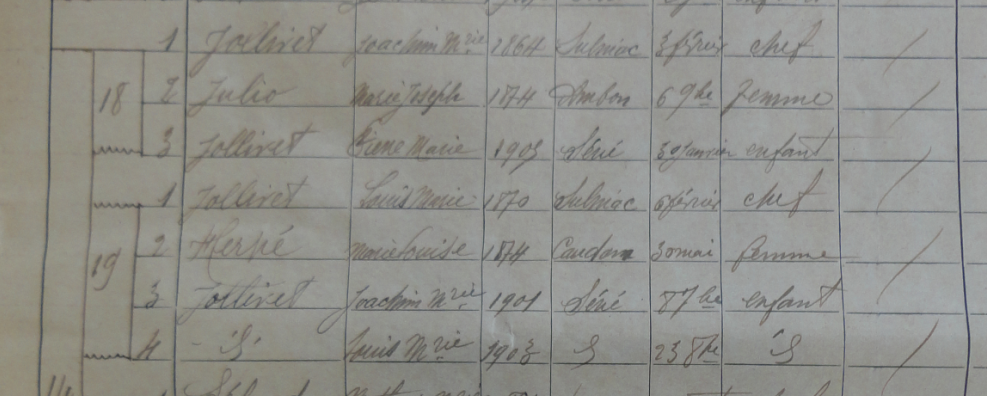 1 Jollivet Joachim Mrie 1864 Sulniac 3 février chef /
18 2 Julio Marie Joseph 1874 Ambon 6 9bre femme /
3 Jollivet Pierre Marie 1903 Séné 30 janvier enfant /
1 Jollivet Louis Marie 1870 Sulniac 6 février chef /
19 2 Herpé Marie Louise 1874 Caudan 30 mai femme /
3 Jollivet Joachim Mrie 1901 Séné 8 7bre enfant /
4 Louis Mrie 1903 23 8bre /